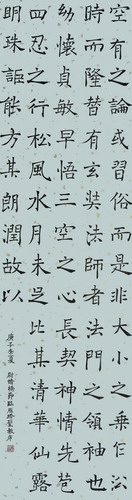 空有或習俗而是非大小之乘乍沿
時而隆替有玄奘法師者法門之領袖也
幼懷貞敏早悟三空之心長契神情先苞
四忍之行松風水月未足比其清華仙露
明珠詎能方其朗潤故以
庚子 臨雁塔聖教序